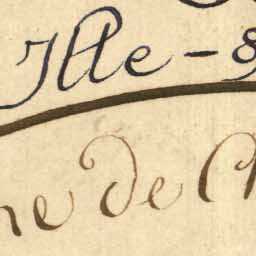 Ille-&
ne de Ch